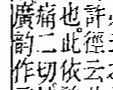 許徑云
也此依
痛二切
廣韵作